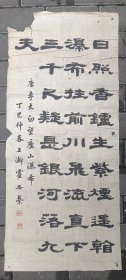 日照香鑪生紫煙遙看
瀑布挂前川飛流直下
三千尺疑是銀河落九
天
唐李太白望廬山瀑布
丁巳仲春上澣